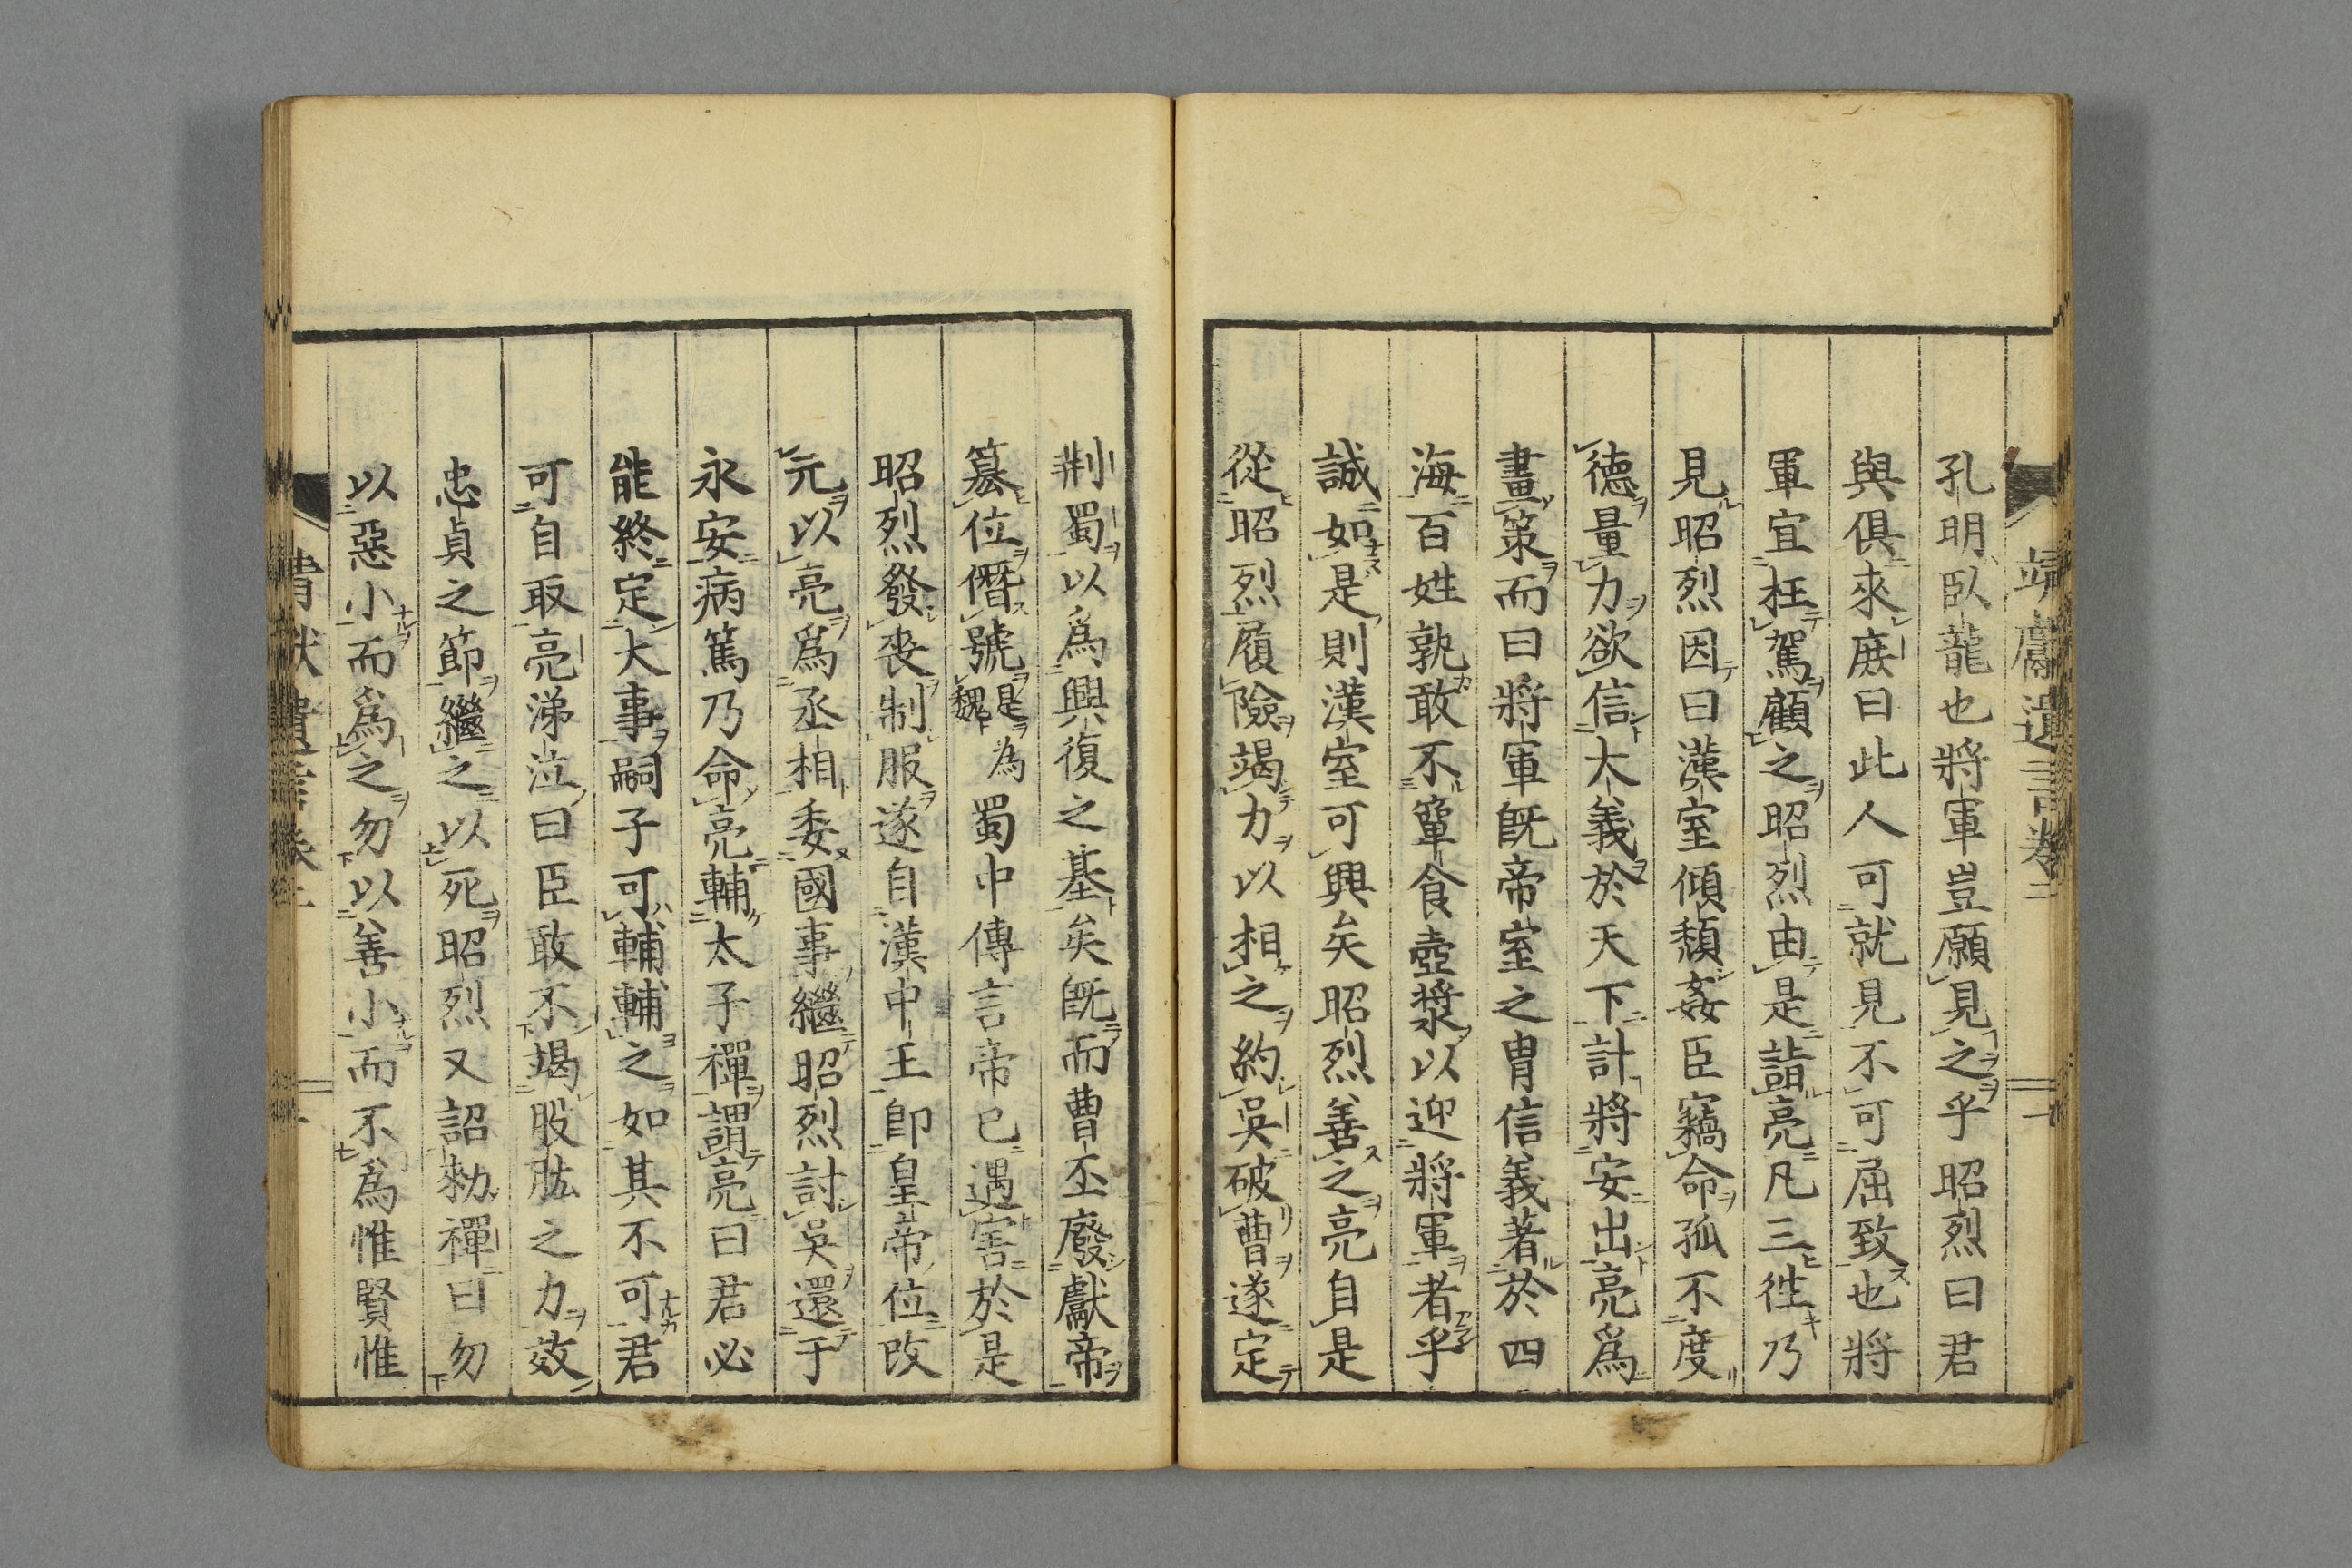 靖獻遺言卷二
孔明臥龍也將軍豈願見之乎昭烈曰君
與俱來庶曰此人可就見不可屈致也將
軍宜枉駕顧之昭烈由是詣亮凡三徃乃
見昭烈因曰漢室傾頽姦臣竊命孤不度
德量力欲信大義於天下計將安出亮爲
畫策而曰將軍旣帝室之胄信義著於四
海百姓孰敢不簞食壺漿以迎將軍者乎
誠如是則漢室可興矣昭烈善之亮自是
從昭烈履險竭力以相之約吳破曹遂定
荆蜀以爲興復之基矣旣而曹丕廢獻帝
簒位僭號是爲魏蜀中傳言帝已遇害於是
昭烈發丧制服遂自漢中王卽皇帝位改
元以亮爲丞相委國事繼昭烈討吳還于
永安病篤乃命亮輔太子禪謂亮曰君必
能終定大事嗣子可輔輔之如其不可君
可自取亮涕泣曰臣敢不竭股肱之力效
忠貞之節繼之以死昭烈又詔勑禪曰勿
以惡小而爲之勿以善小而不爲惟賢惟
靖獻遺言卷二